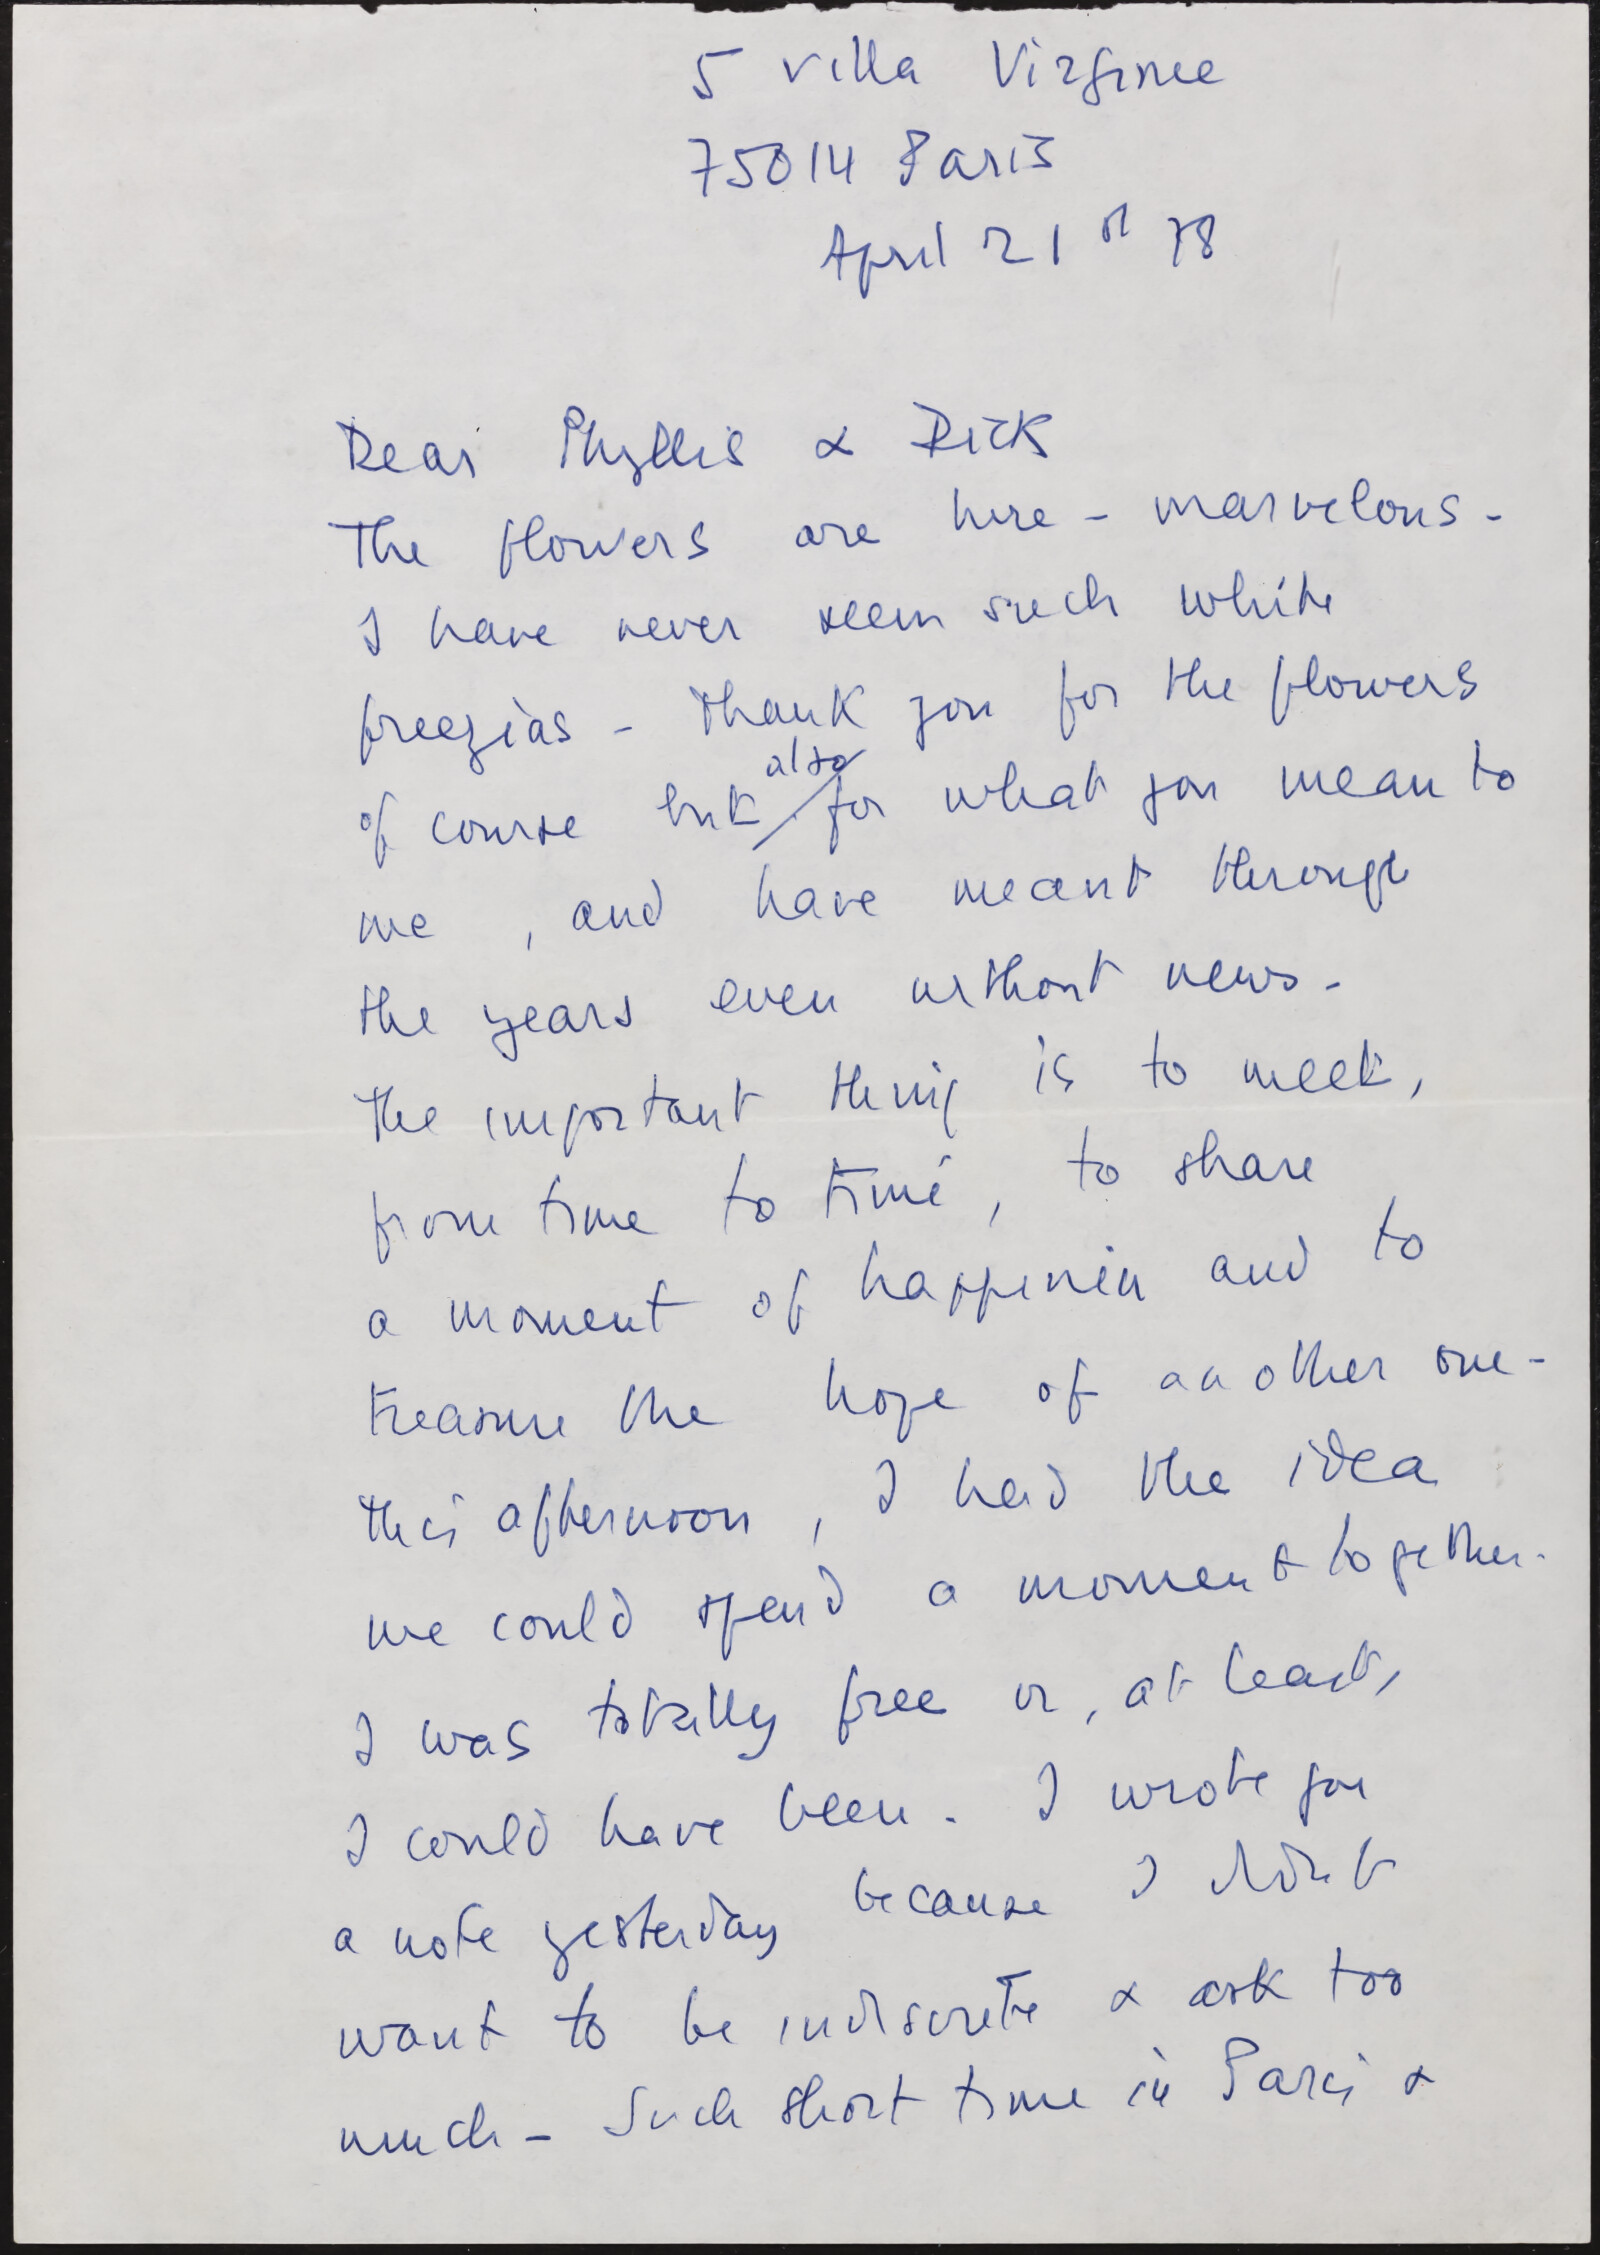 5 villa Virginie
75014 Paris
April 21st 78
Dear Phyllis & Dick
The flowers are here - marvelous -
I have never seen such white
freezias - Thank you for the flowers
of course but also for what you mean to
me, and have meant through
the years even without news -
the important thing is to meet,
from time to time, to share
a moment of happiness and to
treasure the hope of another one -
this afternoon, I had the idea
we could spend a moment together.
I was totally free or, at least,
I could have been. I wrote you
a note yesterday because I didn't
want to be indiscrete & ask too
much - Such short time in Paris &